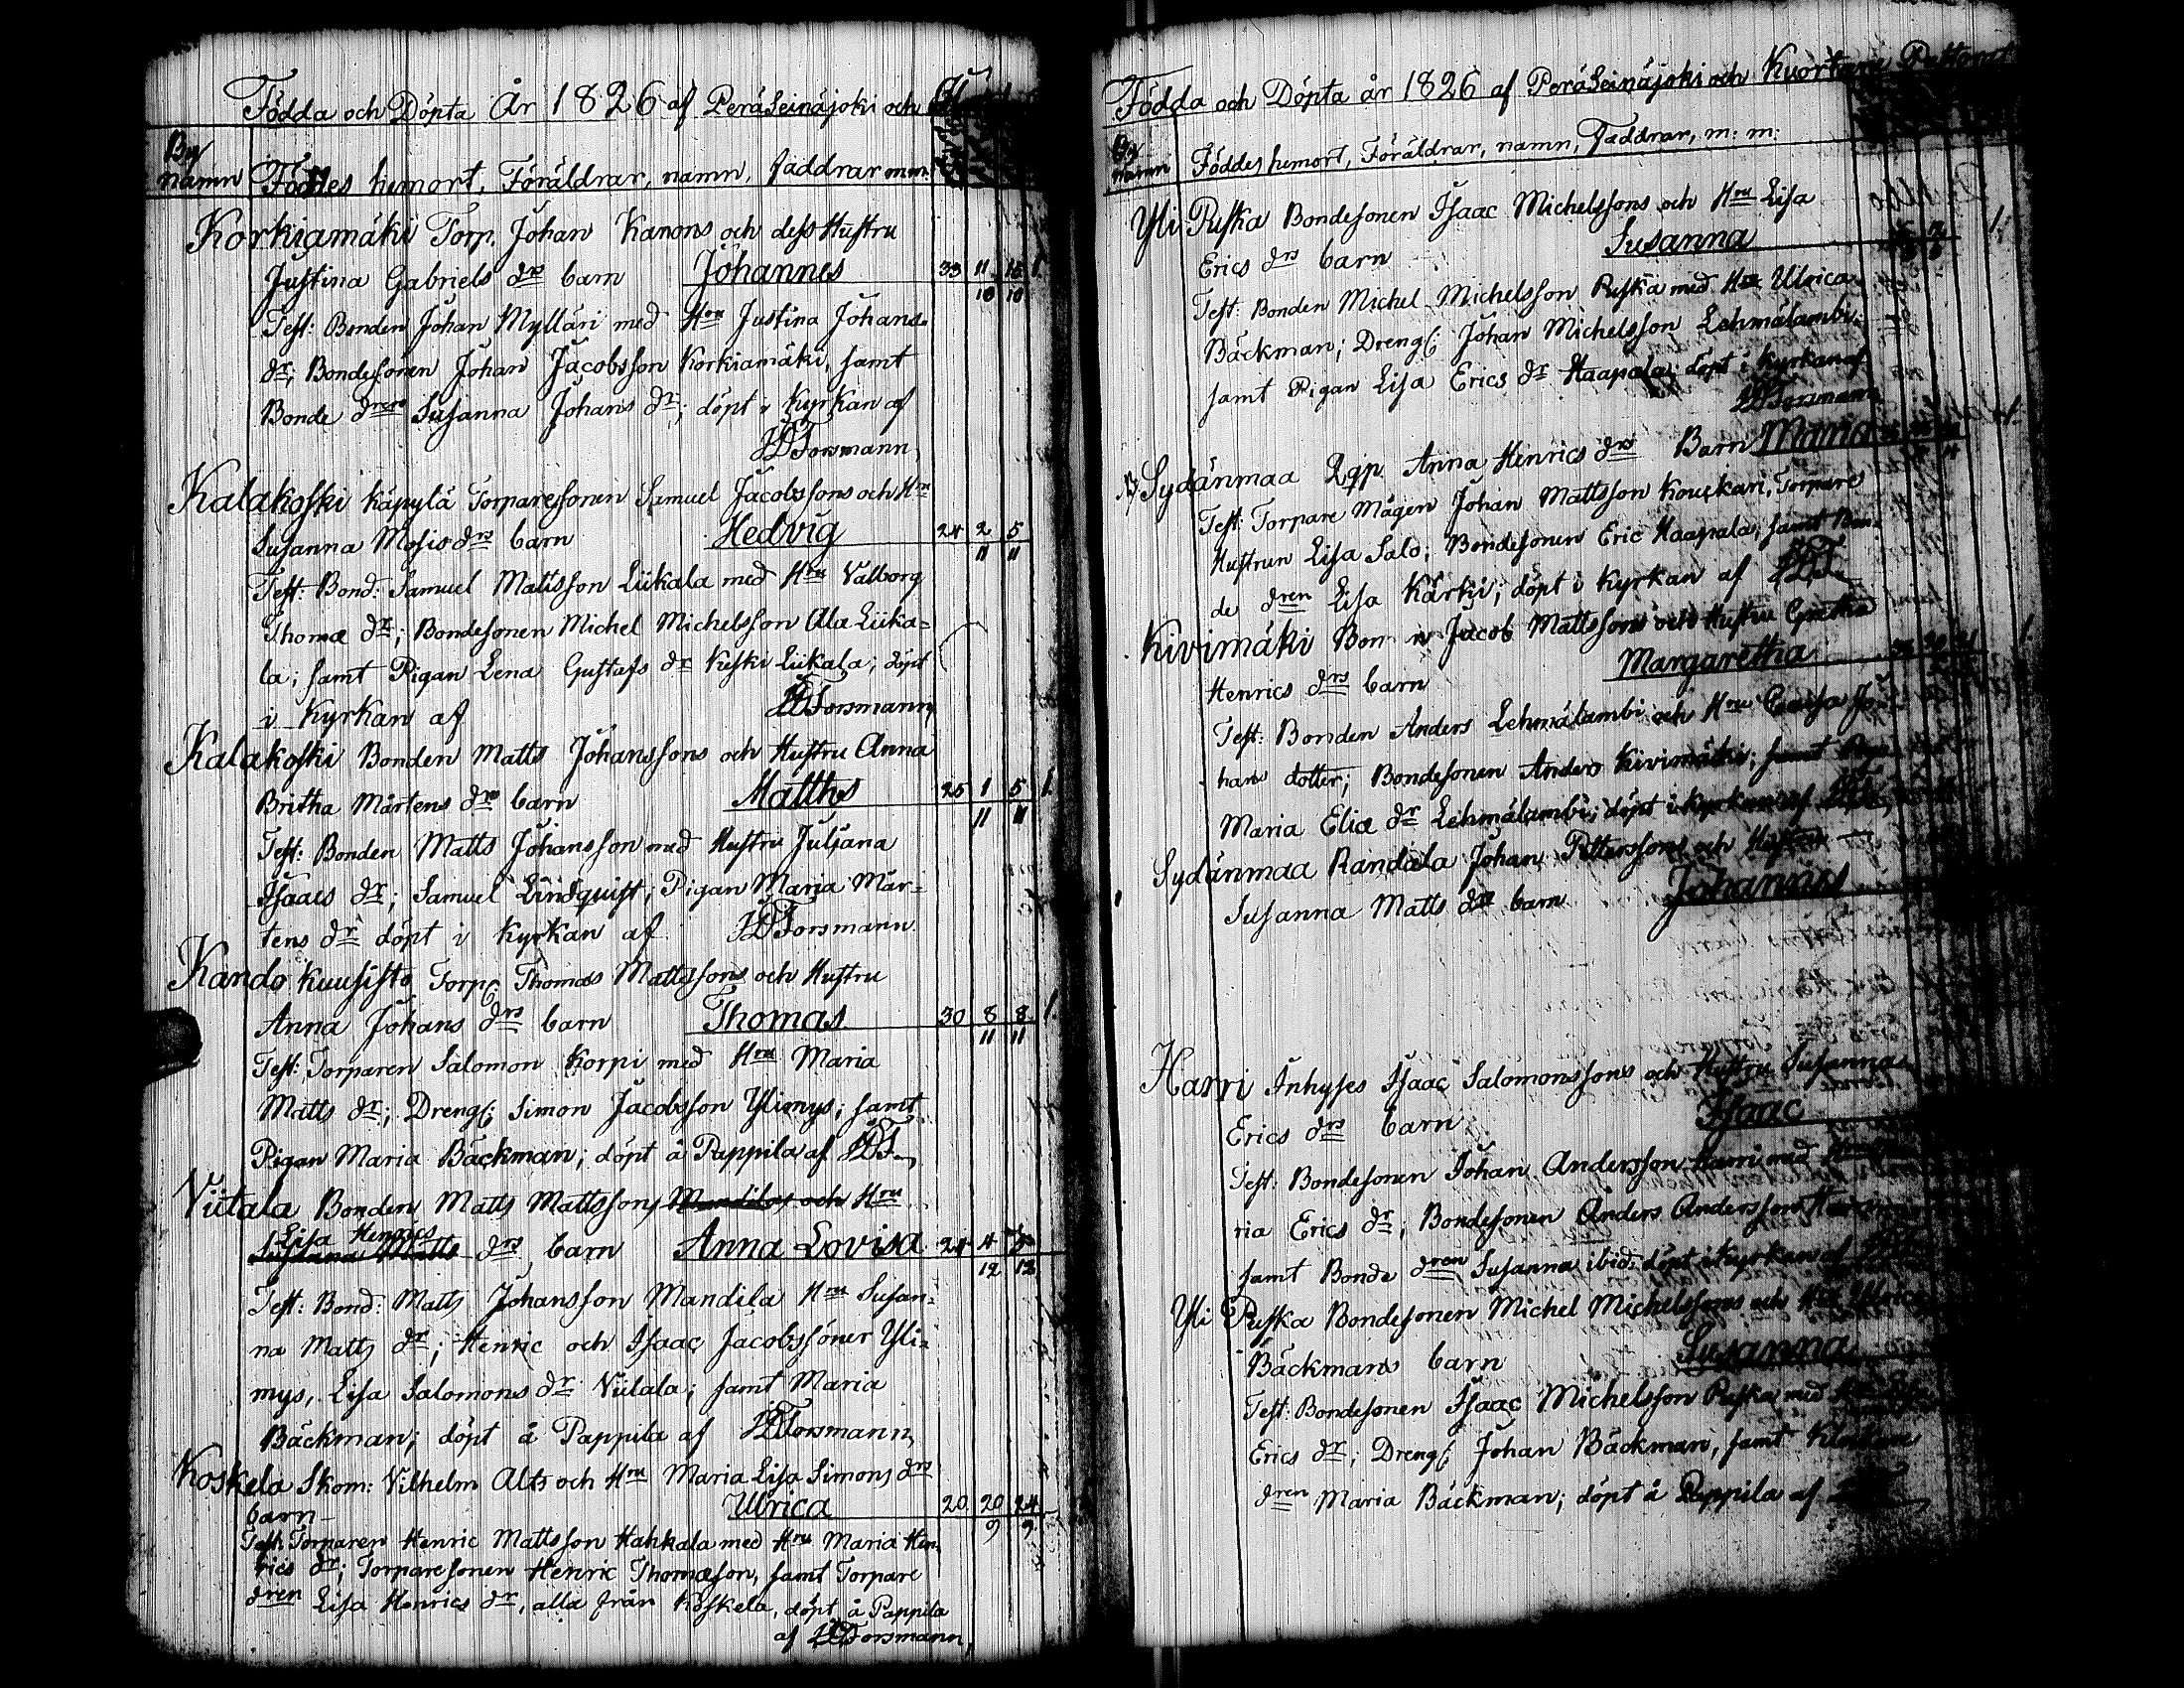 Födda och Döpta År 1826 af Peräseinäjoki och
By
namn Föddes hemort, Föräldrar, namn, faddrar m.m.
Korkiamäki Torp. Johan Kanons och dess Hustru
Justina Gabriels drs barn Johannes 33 11 15 1.
10 10
Test: Bonden Johan Mylläri med Hru Justina Johans
dr; Bondesonen Johan Jacobsson Korkiamäki, samt
Bonde dren Susanna Johans dr; döpt i Kyrkan af
JDForsmann
Kalakoski Käpylä Torparesonen Samuel Jacobssons och Hru
Susanna Mosis drs barn Hedvig 24 2 5
11 11
Test: Bond: Samuel Mattsson Liikala med Hru Valborg
Thomæ dr; Bondesonen Michel Michelsson Ala Liika-
la; samt Pigan Lena Gustafs dr Keski Liikala; döpt
i Kyrkan af JDForsmann
Kalakoski Bonden Matts Johanssons och Hustru Anna
Britha Mårtens drs barn Matths 25 1 5 1.
11 11
Test: Bonden Matts Johansson med Hustru Juliana
Isaacs dr; Samuel Lindquist; Pigan Maria Mår-
tens dr döpt i Kyrkan af JDForsmann
Kando Kuusisto Torp: Thomas Mattssons och Hustru
Anna Johans drs barn Thomas 30 8 8 1.
11 11
Test: Torparen Salomon Korpi med Hru Maria
Matts dr; Dreng: Simon Jacobsson Ylimys; samt
Pigan Maria Bäckman; döpt å Pappila af JDF
Viitala Bonden Matts Mattssons Mandilas och Hru
Lisa Henrics
Susanna Matts drs barn Anna Lovisa 24 4
12 12
Test: Bond: Matts Johansson Mandila Hru Susan-
na Matts dr; Henric och Isaac Jacobssöner Yli-
mys, Lisa Salomons dr Viitala; samt Maria
Bäckman; döpt å Pappila af JDForsmann
Koskela Skom: Vilhelm Alts och Hru Maria Lisa Simons drs
barn Ulrica 20 20 24
9 9
Test: Torparen Henric Mattsson Hahkala med Hru Maria Hen
rics dr; Torparesonen Henric Thomæson, samt Torpare
dren Lisa Henrics dr, alla från Koskela, döpt å Pappila
af JDForsmann
Födda och Döpta år 1826 af Peräseinäjoki och Kuortane
By
namn Föddes hemort, Föräldrar, namn, Faddrar, m: m:
Yli Ruska Bondesonen Isaac Michelssons och Hru Lisa
Erics drs barn Susanna 1.
Test: Bonden Michel Michelsson Ruska med Hru Ulrica
Bäckman; Dreng: Johan Michelsson Lehmälambi;
samt Pigan Lisa Erics dr Haapala döpt i Kyrkan af
JDForsmann
Sydänmaa Qqp Anna Henrics drs Barn Maria
Test: Torpare Mågen Johan Mattsson Kouckari, Torpare
Hustrun Lisa Salo; Bondesonen Eric Haapala; samt Bon-
de dren Lisa Kärki; döpt i Kyrkan af JDF
Kivimäki Jacob Mattssons och Hustru Gretha
Henrics drs barn Margaretha 1.
Test: Bonden Anders Lehmälambi och Hru Caisa Jo-
hans dotter; Bondesonen Anders Kivimäki; samt
Maria Eliæ dr Lehmälambi; döpt i Kyrkan af
Sydänmaa Randala Johan Pettersons och Hustru
Susanna Matts drs barn Johannes
Harri Inhyses Isaac Salomonssons och Hustru Susanna
Erics drs barn Isaac
Test: Bondesonen Johan Andersson Harri med
ria Erics dr; Bondesonen Anders Andersson
samt Bonde dren Susanna ibid: döpt i Kyrkan af
Yli Ruska Bondesonen Michel Michelssons och Hru Ulrica
Bäckmans barn Susanna
Test: Bondesonen Isaac Michelsson Ruska med
Erics dr; Dreng: Johan Bäckman, samt
dren Maria Bäckman; döpt å Pappila af